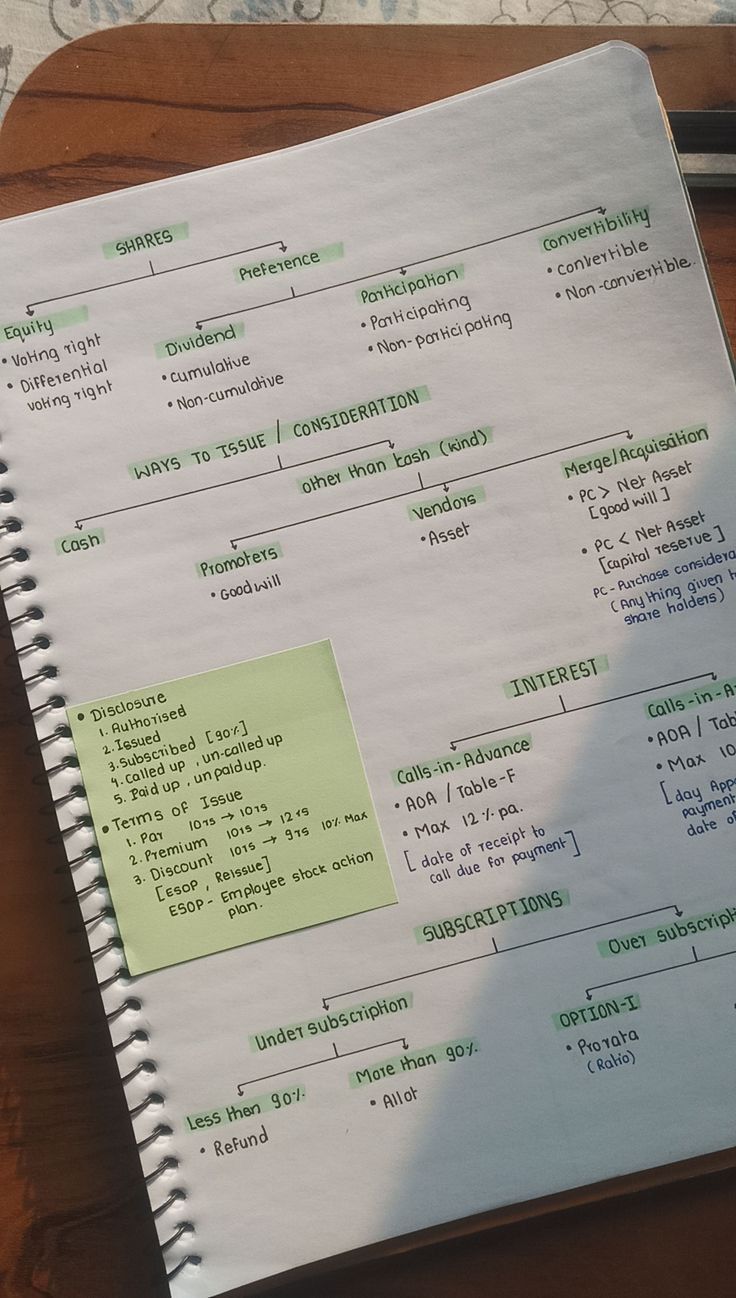 SHARES
Equity
• Voting right
• Differential
voting right
Preference
Dividend
• cumulative
• Non-cumulative
Participation
• Participating
• Non-participating
convertibility
• convertible
• Non-convertible.
WAYS TO ISSUE / CONSIDERATION
Cash
other than cash (kind)
Promoters
• Good will
Vendors
• Asset
Merge/Acquisation
• PC > Net Asset
[good will]
• PC < Net Asset
[capital reserve]
PC - Purchase considera
(Any thing given t
share holders)
• Disclosure
1. Authorised
2. Issued
3. Subscribed [90%]
4. called up , un-called up
5. Paid up , un paid up.
• Terms of Issue
1. Par 10rs → 10rs
2. Premium 10rs → 12rs
3. Discount 10rs → 9rs 10% Max
[ESOP , Reissue]
ESOP - Employee stock action
plan.
INTEREST
Calls-in-Advance
• AOA / Table-F
• Max 12% pa.
[date of receipt to
call due for payment]
Calls-in-A
• AOA / Tab
• Max 10
[day App
payment
date of
SUBSCRIPTIONS
Under subscription
Less then 90%.
• Refund
More than 90%.
• Allot
Over subscript
OPTION-I
• Prorata
(Ratio)